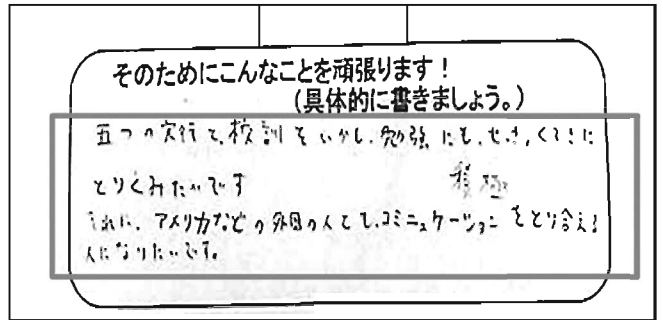 そのためにこんなことを頑張ります！
(具体的に書きましょう。)
五つの実行と、校訓をいかし、勉強にも、せっきょくてきに
とりくみたいです
積極
それに、アメリカなどの外国の人とも、コミニュケーションをとり合える
人になりたいです。